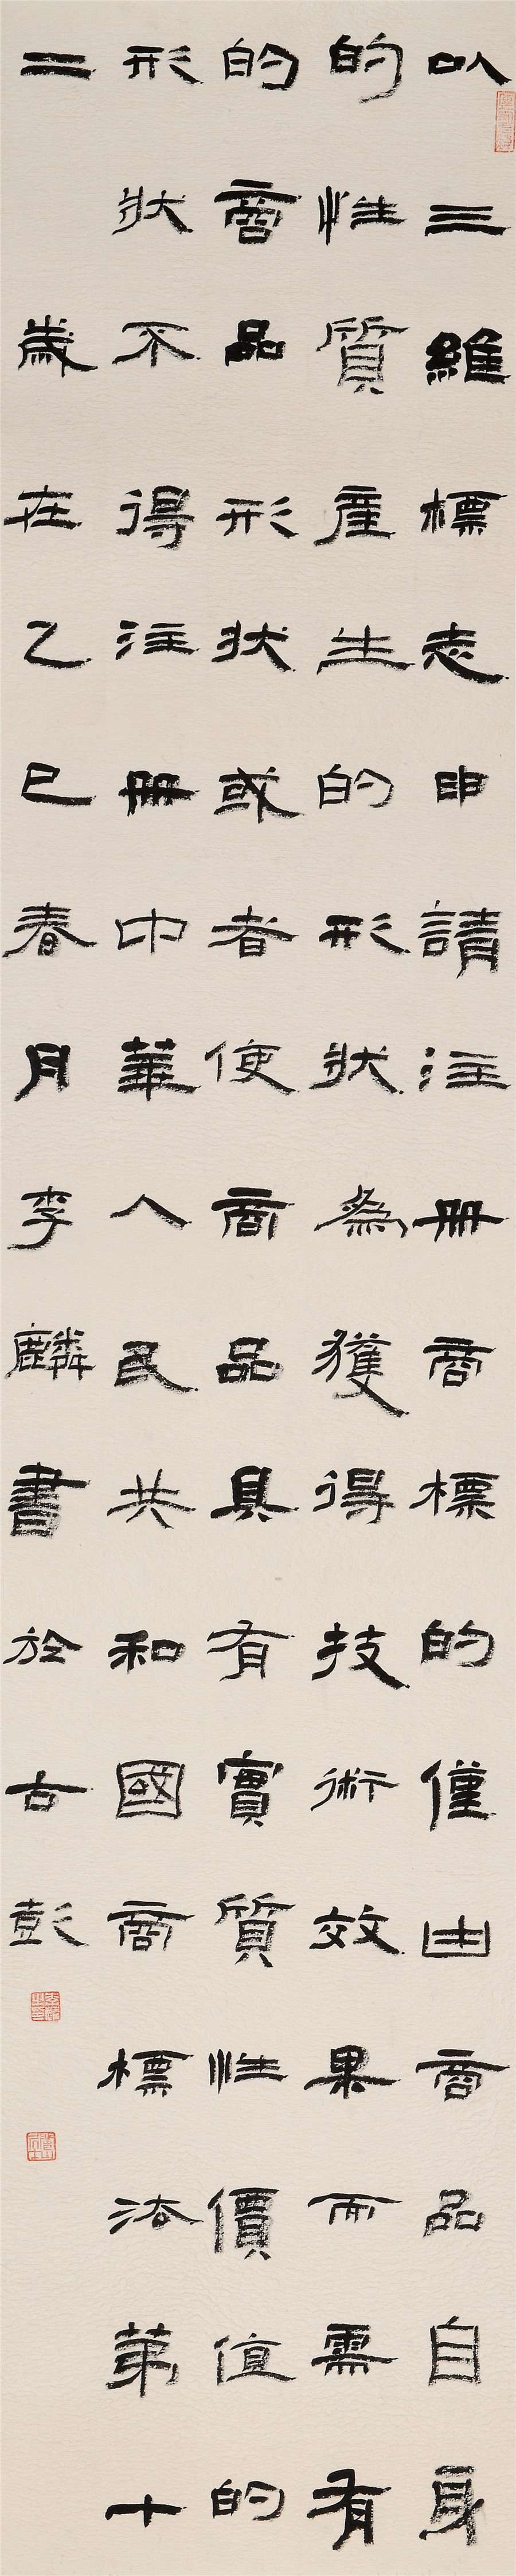 以三維標志申請注册商標的僅由商品自身
的性質產生的形狀為獲得技術效果而需有
的商品形狀或者使商品具有實質性價值的
形狀不得注册中華人民共和國商標法第十
二
歲在乙巳春月李麟書於古彭